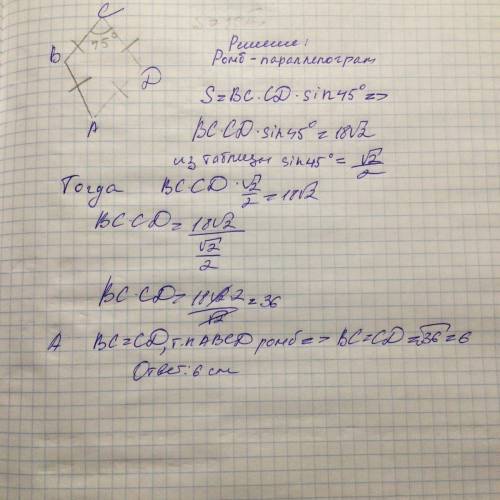 C
75°
B
D
A
Решение:
Ромб - параллелограм
S = BC · CD · sin 45° =>
BC · CD · sin 45° = 18√2
из таблицы sin 45° = √2/2
Тогда BC CD · √2/2 = 18√2
BC · CD = 18√2 / (√2/2)
BC · CD = 18√2 2 / √2 = 36
А BC = CD, т.к ABCD ромб => BC = CD = √36 = 6
Ответ: 6 см